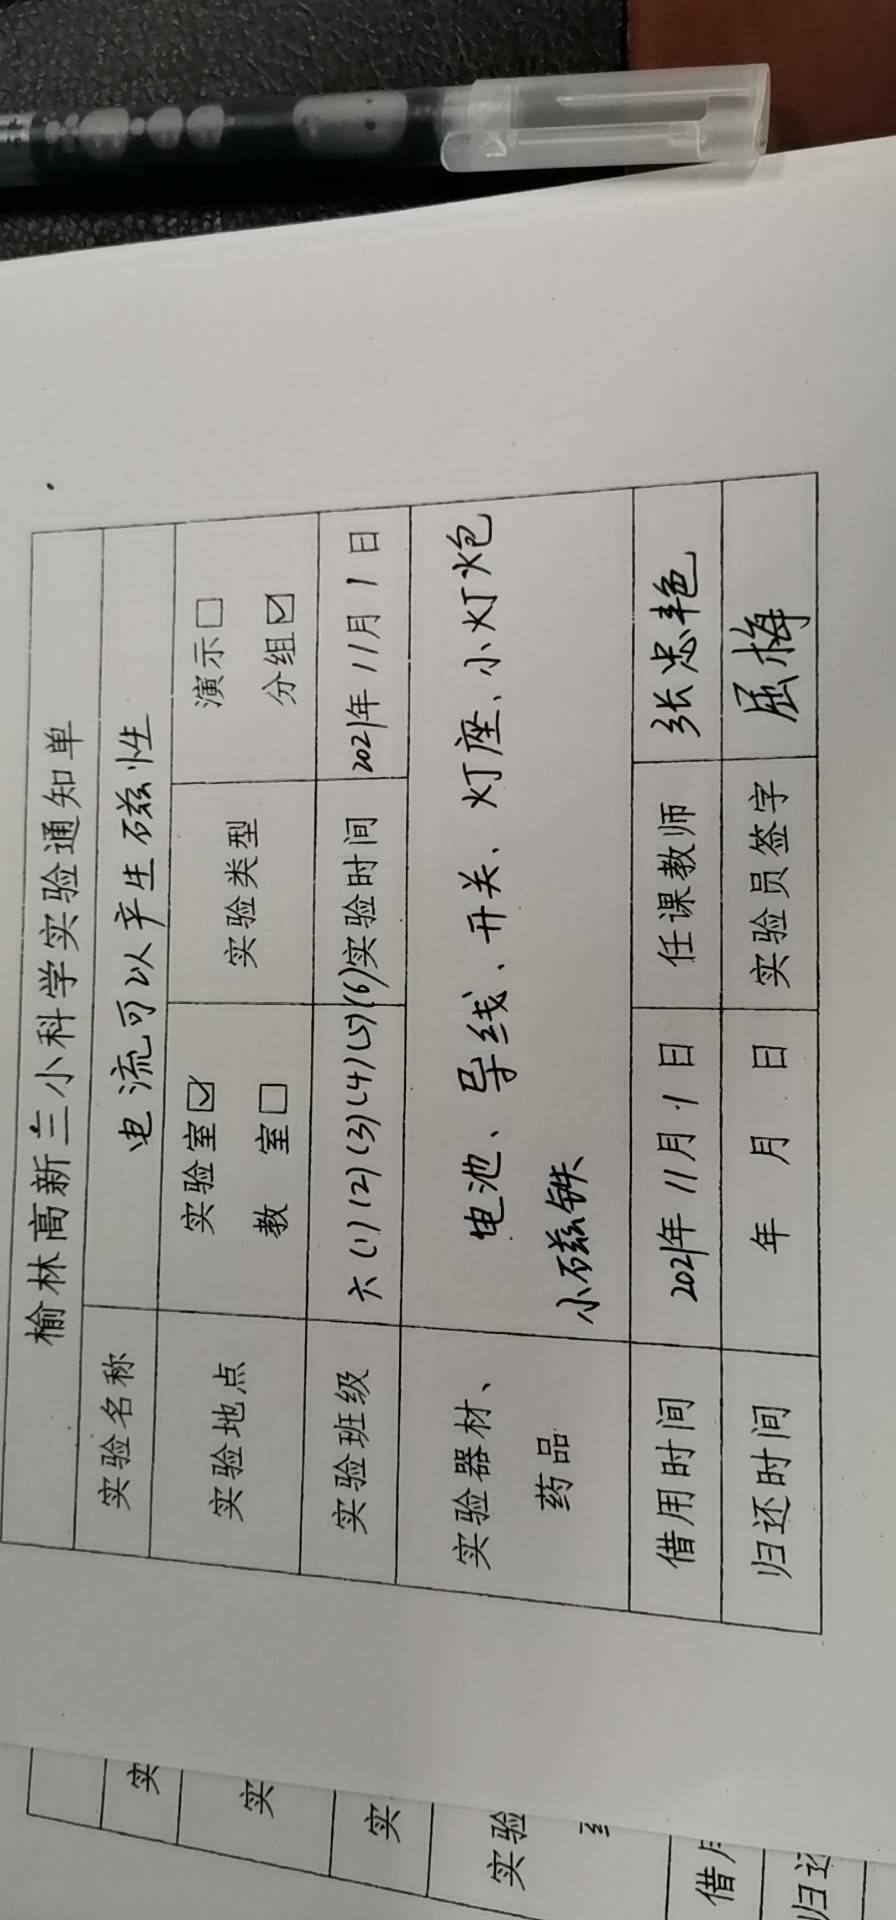 榆林高新三小科学实验通知单
实验名称 电流可以产生磁性
实验地点 实验室☑ 教 室□ 实验类型 演示□ 分组☑
实验班级 六(1)(2)(3)(4)(5)(6) 实验时间 2021年11月1日
实验器材、药品 电池、导线、开关、灯座、小灯炮
小磁铁
借用时间 2021年11月1日 任课教师 张忠艳
归还时间 年 月 日 实验员签字 屈梅
实
实
实
实验
借用
归还